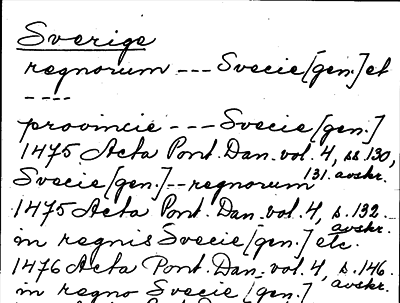 Sverige
regnorum --- Svecie [gen.] et
----
provincië --- Svecie [gen.]
1475 Acta Pont. Dan. vol. 4, ss. 130,
131. avskr.
Svecie [gen.] -- regnorum
1475 Acta Pont. Dan. vol. 4, s. 132.
avskr.
in regnis Svecie [gen.] etc.
1476 Acta Pont. Dan. vol. 4, s. 146.
avskr.
in regno Svecie [gen.]